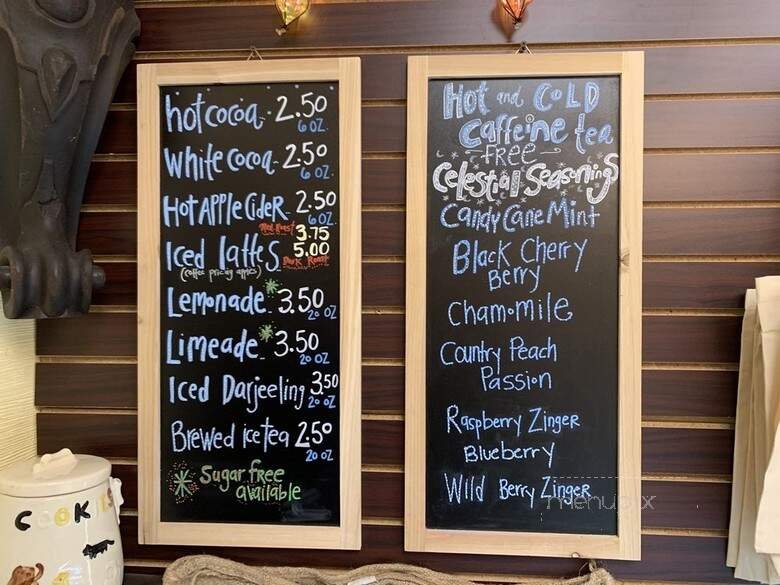 hot cocoa - 2.50
6 OZ.
White Cocoa - 2.50
6 OZ.
Hot Apple Cider - 2.50
6 OZ.
Med. Roast 3.75
Iced lattes 5.00
(coffee pricing applies) Dark Roast
Lemonade * 3.50
20 OZ
Limeade * - 3.50
20 OZ
Iced Darjeeling 3.50
20 OZ
Brewed ice tea 2.50
20 OZ
* Sugar free
available
Hot and COLD
Caffeine tea
- FREE -
Celestial Seasonings
Candy Cane Mint
Black Cherry
Berry
Chamomile
Country Peach
Passion
Raspberry Zinger
Blueberry
Wild Berry Zinger
menupix
COOKIES